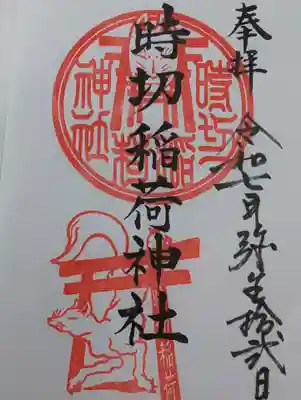 奉拝
令和七年弥生拾弐日
時切稲荷神社
時切稲荷神社
稲荷